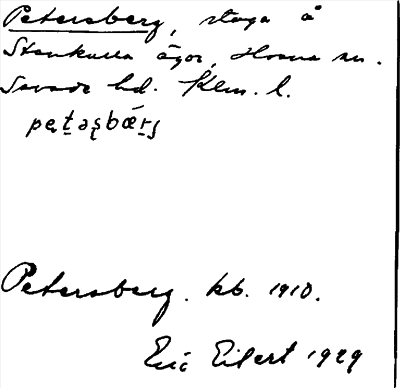 Petersberg, stuga å
Stenkulla ägor, Hosna sn.
Sevede hd. Klm. l.
pętəşbǽrj
Petersberg. kb. 1910.
Eric Eilert 1929